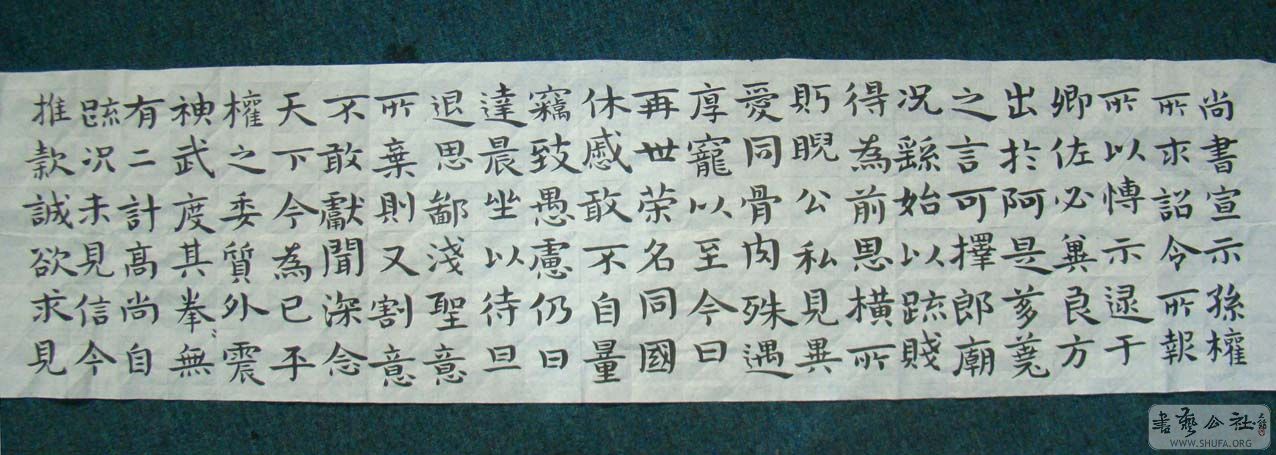 尚書宣示孫權
所求詔令所報
所以愽示逯于
卿佐必兾良方
出於阿是芻蕘
之言可擇郎廟
况繇始以疏賤
得為前恩橫所
眄睨公私見異
愛同骨肉殊遇
厚寵以至今日
再世荣名同國
休慼敢不自量
竊致愚慮仍日
達晨坐以待旦
退思鄙淺聖意
所棄則又割意
不敢獻聞深念
天下今為已平
權之委質外震
神武度其拳〻無
有二計高尚自
疏况未見信今
推款誠欲求見
書藝公社
WWW.SHUFA.ORG